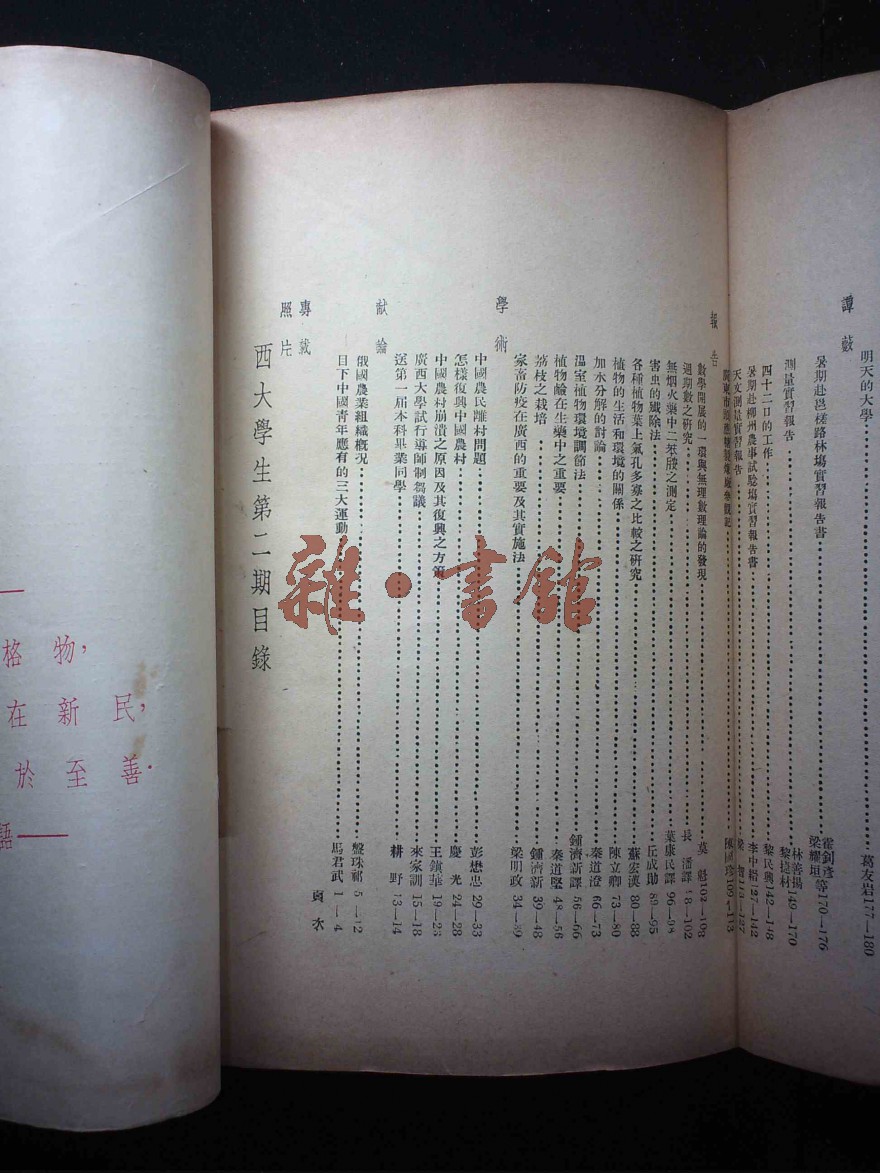 格物，
在新民，
於至善．
語——
西大學生第二期目錄
頁次
照片
專載
目下中國青年應有的三大運動……馬君武 1—4
俄國農業組織概况……盤珠祁 5—12
献論
送第一届本科畢業同學……耕野 13—14
廣西大學試行導師制芻議……來家訓 15—18
中國農村崩潰之原因及其復興之方策……王鎮華 19—23
怎樣復興中國農村……慶光 24—28
中國農民離村問題……彭懋忠 29—33
學術
家畜防疫在廣西的重要及其實施法……梁明政 34—39
荔枝之栽培……鍾濟新 39—48
植物鹼在生藥中之重要……秦道堅 48—56
温室植物環境調節法……鍾濟新譯 56—66
加水分解的討論……秦道澄 66—73
植物的生活和環境的關係……陳立卿 73—80
各種植物葉上氣孔多寡之比較之研究……蘇宏漢 80—88
害虫的殲除法……丘成勛 89—95
無烟火藥中二苯胺之測定……葉康民譯 96—98
週期數之研究……長潘譯 98—102
數學開展的一環與無理數理論的發現……莫魁 102—108
報告
陳國珍 109—113
天文測量實習報告
暑期赴柳州農事試驗塲實習報告書……李中裕 127—142
四十二日的工作……黎民興 142—148
測量實習報告……林善揚 黎提材 149—170
暑期赴邕槎路林塲實習報告書……霍釗彥 梁耀垣等 170—176
譚藪
明天的大學……葛友岩 177—180
雜·書館